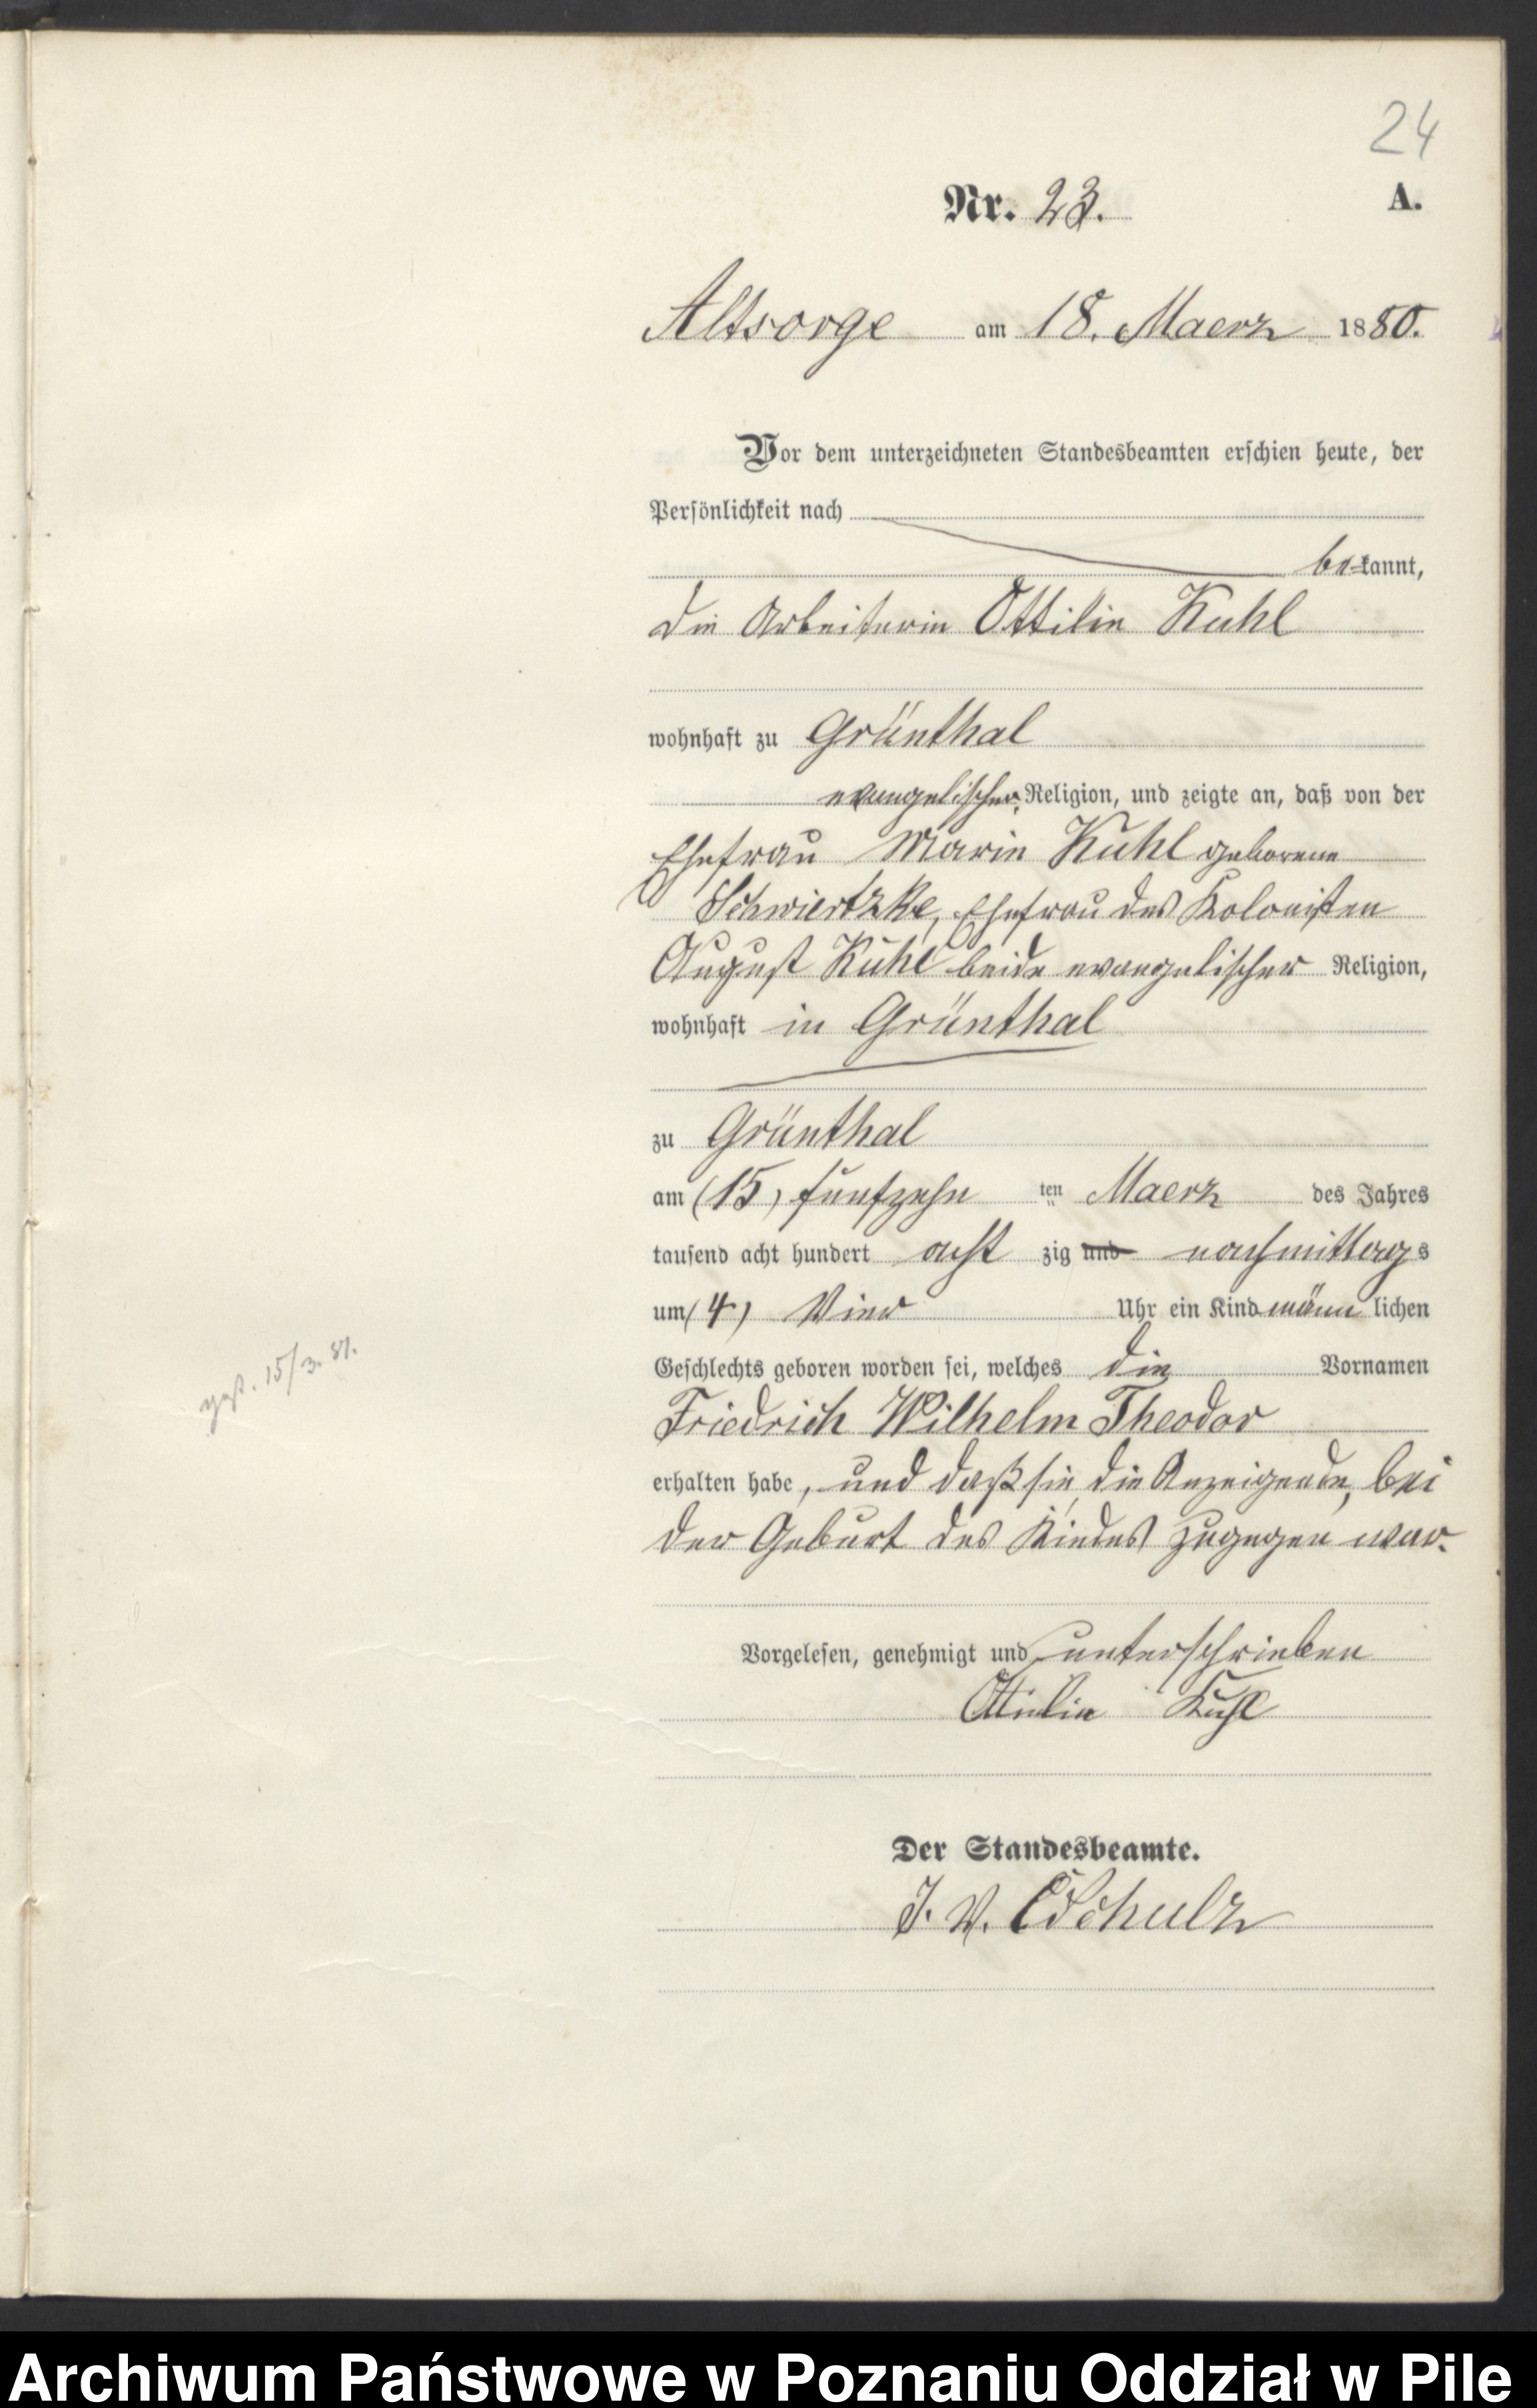 24
Nr. 23.
A.
Altsorge am 18. Maerz 1880.
Vor dem unterzeichneten Standesbeamten erschien heute, der
Persönlichkeit nach
bekannt,
die Arbeiterin Ottilie Kuhl
wohnhaft zu Grünthal
evangelischer Religion, und zeigte an, daß von der
Ehefrau Marie Kuhl geborene
Schwiertzke, Ehefrau des Kolonisten
August Kuhl beide evangelischer Religion,
wohnhaft in Grünthal
zu Grünthal
am (15) fünfzehn ten Maerz des Jahres
tausend acht hundert acht zig und nachmittags
um (4) Vier Uhr ein Kind männlichen
Geschlechts geboren worden sei, welches die Vornamen
Friedrich Wilhelm Theodor
erhalten habe, und daß sie, die Anzeigende, bei
der Geburt des Kindes zugegen war.
gest. 15/3. 81.
Vorgelesen, genehmigt und unterschrieben
Ottilie Kuhl
Der Standesbeamte.
J. V. Schulz
Archiwum Państwowe w Poznaniu Oddział w Pile